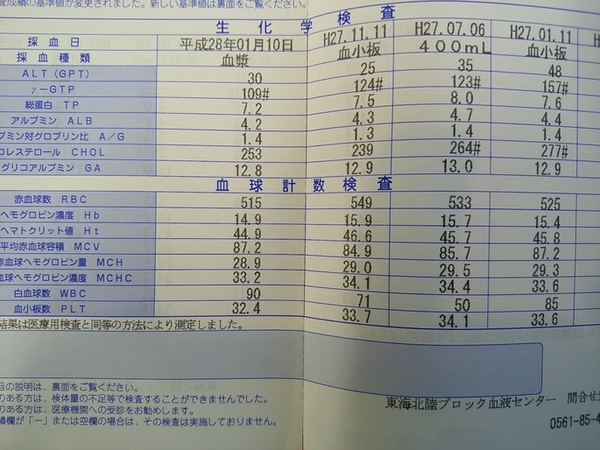 査成績の基準値が変更されました。新しい基準値は裏面をご覧ください。
生化学検査
採血日 平成28年01月10日 H27.11.11 H27.07.06 H27.01.11
採血種類 血漿 血小板 400mL 血小板
ALT(GPT) 30 25 35 48
γ-GTP 109# 124# 123# 157#
総蛋白 TP 7.2 7.5 8.0 7.6
アルブミン ALB 4.2 4.3 4.7 4.4
ブミン対グロブリン比 A/G 1.4 1.3 1.4 1.4
コレステロール CHOL 253 239 264# 277#
グリコアルブミン GA 12.8 12.9 13.0 12.9
血球計数検査
赤血球数 RBC 515 549 533 525
ヘモグロビン濃度 Hb 14.9 15.9 15.7 15.4
ヘマトクリット値 Ht 44.9 46.6 45.7 45.8
平均赤血球容積 MCV 87.2 84.9 85.7 87.2
赤血球ヘモグロビン量 MCH 28.9 29.0 29.5 29.3
血球ヘモグロビン濃度 MCHC 33.2 34.1 34.4 33.6
白血球数 WBC 90 71 50 85
血小板数 PLT 32.4 33.7 34.1 33.6
結果は医療用検査と同等の方法により測定しました。
目の説明は、裏面をご覧ください。
のある方は、検体量の不足等で検査することができませんでした。
のある方は、医療機関への受診をお勧めします。
績欄が「ー」または空欄の場合は、その検査は実施しておりません。
東海北陸ブロック血液センター 問合せ
0561-85-4